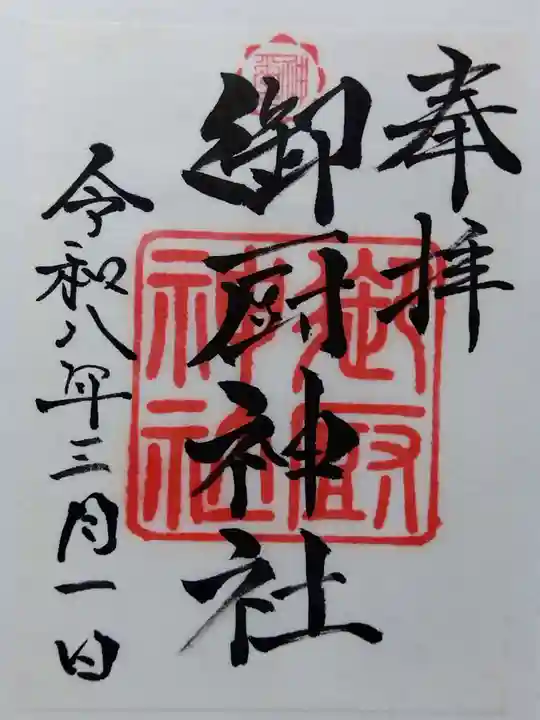 奉拝
御厨神社
令和八年三月一日
御厨
神社